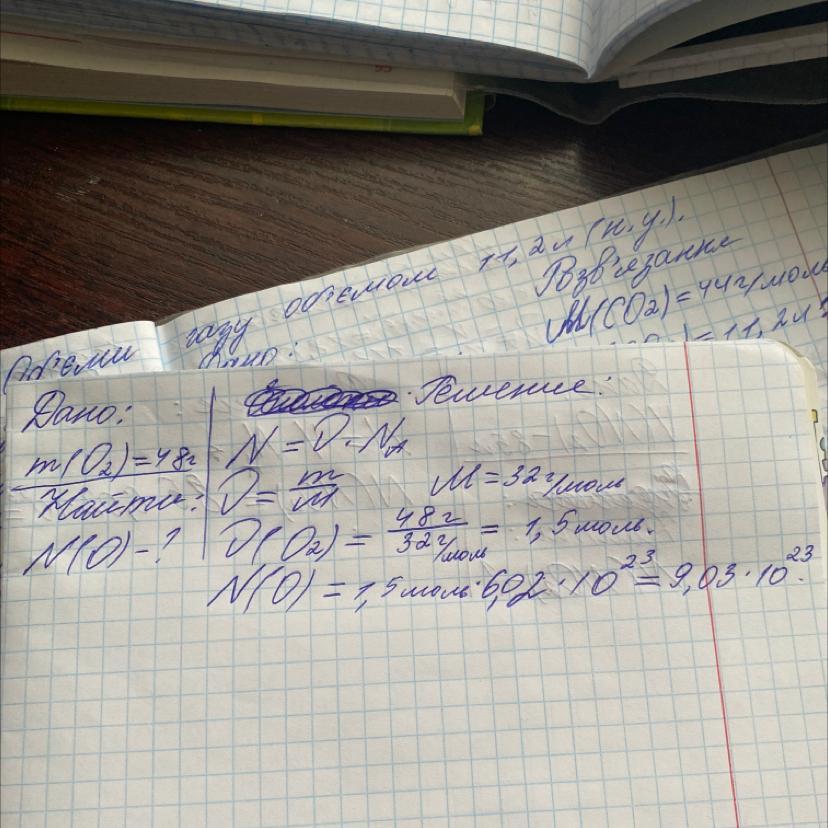 газу объемом 11,2л (н.у.).
Розв'язання
M(CO₂) = 44г/моль
= 11,2л
Дано:
m(O₂) = 48г
Найти:
N(O) - ?
Решение:
N = ν · Nₐ
ν = m/M M = 32г/моль
ν(O₂) = 48г/32г/моль = 1,5моль.
N(O) = 1,5моль · 6,02 · 10²³ = 9,03 · 10²³.